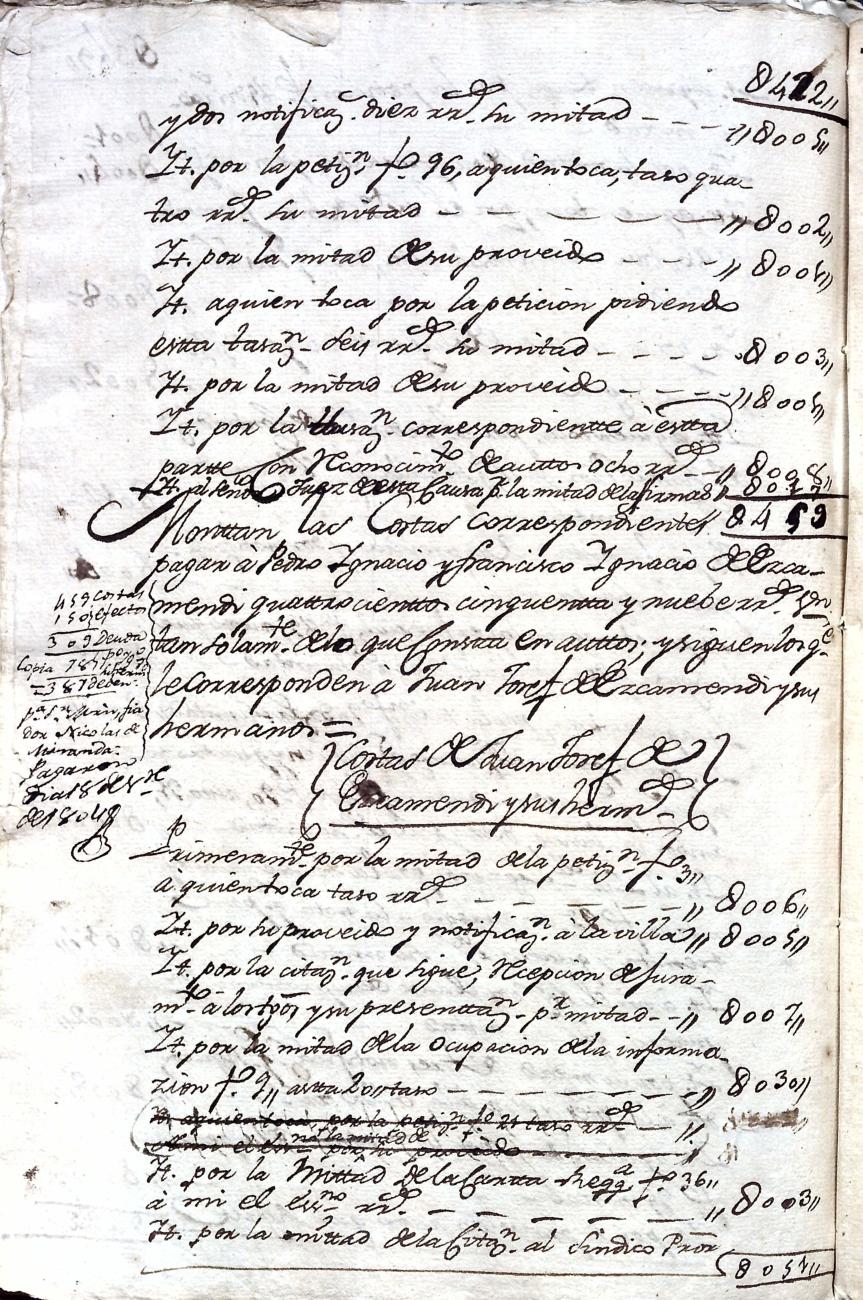 8422„
y dos notificaz.n diez rr.s su mitad — — — „ 8005„
It. por la petiz.n f.o 96, a quien toca, taso qua-
tro rr.s su mitad — — — — „ 8002„
It. por la mitad de su proveido — — — „
It. a quien toca por la peticion pidiendo
estta tasaz.n seis rr.s su mitad — — — — 8003„
It. por la mitad de su proveido — — — — „
It. por la tasaz.n correspondientte à estta
partte con Reconocim.to de auttos ocho rr.s — „ 8008„
It. al señor Juez de esta Causa p.r la mitad de las firmas „
Monttan las Costas correspondientes 8459
pagar à Pedro Ignacio y francisco Ignacio de Ezca-
mendi quattrocienttos cinquentta y nuebe rr.s
tan solam.te de lo que Constta en auttos; y siguen los q.e
le corresponden à Juan Josef de Ezcamendi y sus
hermanos =
459 costas
150 efectos
309 Deuda
Copia 78
= 387 deben
fia
dor Nicolas de
Miranda.
Pagaron
dia 18 de
de 1804
Costas de Juan Josef de
Ezcamendi y sus herm.s
Primeram.te por la mitad de la petiz.n f.o 3„
à quien toca taso rr.s — — — — — „ 8006„
It. por su proveido y notificaz.n à la villa „ 8005„
It. por la citaz.n que sigue, Recepcion de jura-
m.to à los tgôs y su presenttaz.n p.r mitad — „ 8007„
It. por la mitad de la ocupacion de la informa-
zion f.o 9„ astta 20„ taso — — — — „ 8030„
It. a quien toca, por la petiz.n f.o 25 taso rr.s — „
A mi el Ess.no la mitad de por su proveido — „
It. por la Mittad de la Cartta f.o 36„
à mi el ess.no rr.s — — — — — „ 8003„
It. por la mittad de la Citaz.n al sindico Pror
8051„